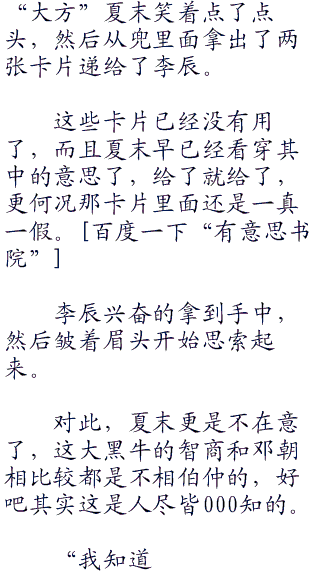 “大方”夏末笑着点了点
头，然后从兜里面拿出了两
张卡片递给了李辰。
这些卡片已经没有用
了，而且夏末早已经看穿其
中的意思了，给了就给了，
更何况那卡片里面还是一真
一假。[百度一下“有意思书
院”]
李辰兴奋的拿到手中，
然后皱着眉头开始思索起
来。
对此，夏末更是不在意
了，这大黑牛的智商和邓朝
相比较都是不相伯仲的，好
吧其实这是人尽皆000知的。
“我知道